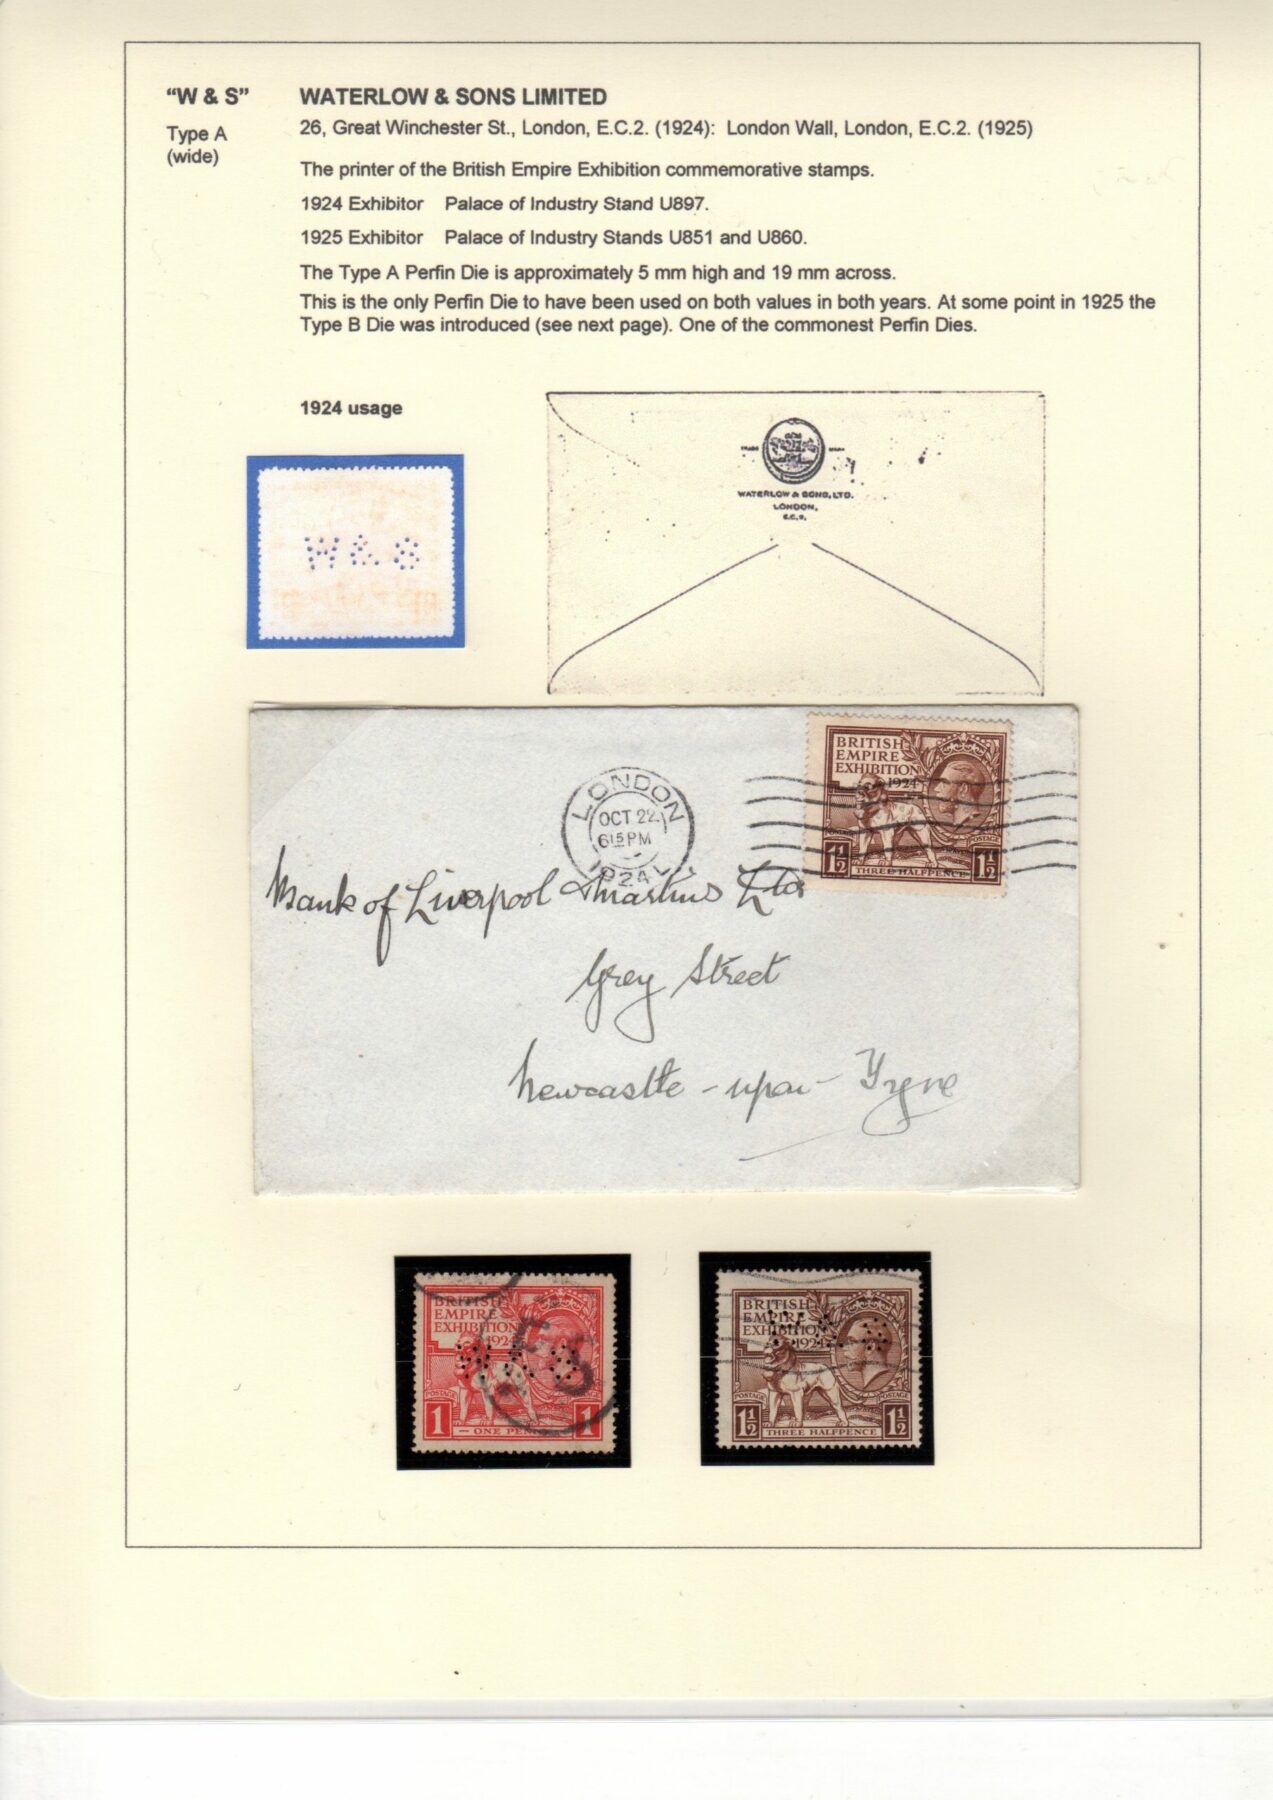 "W & S" WATERLOW & SONS LIMITED
Type A
(wide)
26, Great Winchester St., London, E.C.2. (1924): London Wall, London, E.C.2. (1925)
The printer of the British Empire Exhibition commemorative stamps.
1924 Exhibitor Palace of Industry Stand U897.
1925 Exhibitor Palace of Industry Stands U851 and U860.
The Type A Perfin Die is approximately 5 mm high and 19 mm across.
This is the only Perfin Die to have been used on both values in both years. At some point in 1925 the
Type B Die was introduced (see next page). One of the commonest Perfin Dies.
1924 usage
W & S
TRADE MARK
WATERLOW & SONS, LTD.
LONDON,
LONDON
OCT 22
6 15 PM
1924
BRITISH
EMPIRE
EXHIBITION
1924
POSTAGE POSTAGE
1½ THREE HALFPENCE 1½
Bank of Liverpool & Martins Ltd
Grey Street
Newcastle-upon-Tyne
BRITISH
EMPIRE
EXHIBITION
1924
W & S
POSTAGE
1 ONE PEN 1
BRITISH
EMPIRE
EXHIBITION
1924
W & S
POSTAGE POSTAGE
1½ THREE HALFPENCE 1½